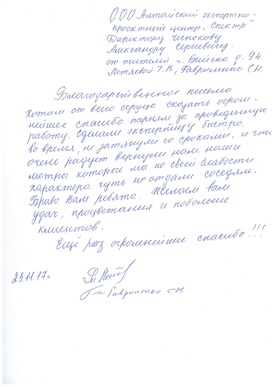 ООО Алтайский экспертно-
проектный центр "Спектр"
Директору Чеснокову
Александру Сергеевичу
от жителей г. Бийска д. 94.
Литягой Т.В., Гавриленко С.Н.
Благодарственное письмо
Хотела от всего сердца сказать огром-
нейшее спасибо парням за проведенную
работу. Сделали экспертизу быстро,
во время, не затянули со сроками. и что
очень радует вернули нам наши
метры которые мы по своей слабости
характера чуть не отдали соседям.
Браво Вам ребята. Желаем вам
удач, процветания и побольше
клиентов.
Ещё раз огромнейшее спасибо!!!
23.11.17г.
Гавриленко С.Н.